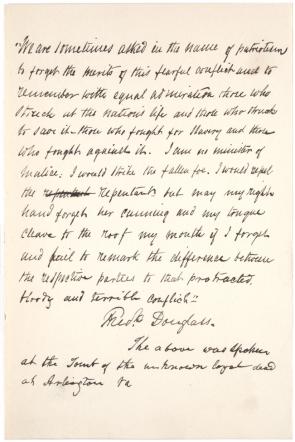 "We are sometimes asked in the name of patriotism
to forget the merits of this fearful conflict and to
remember with equal admiration those who
struck at the nation's life and those who struck
to save it - those who fought for slavery and those
who fought against it. I am no minister of
malice: I would strike the fallen foe. I would repel
the repentant repentant but may my right
hand forget her cunning and my tongue
cleave to the roof my mouth if I forget
and fail to remark the difference between
the respective parties to that protracted
bloody and terrible conflict."
Fredk Douglass.
The above was spoken
at the Tomb of the unknown loyal dead
at Arlington Va